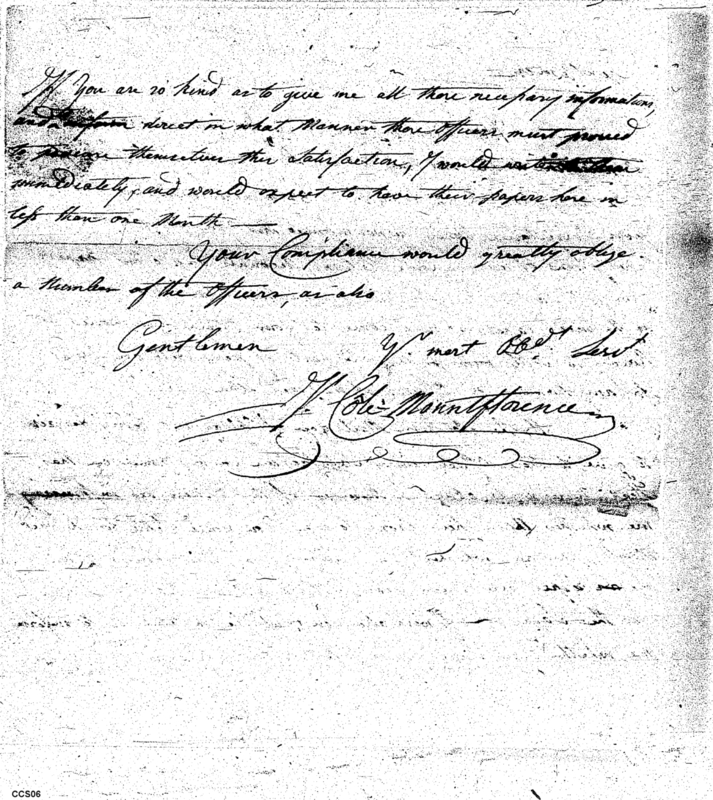 If You are so kind as to give me all those necessary informations,
and direct in what Manner those Officers must proceed
to procure themselves this Satisfaction, I would write
immediately, and would expect to have their papers here in
less than one Month —
Your Compliance would greatly oblige
a Number of the Officers, as also
Gentlemen Yr. most Obedt Servt
J. Cole Mountflorence
CCS06